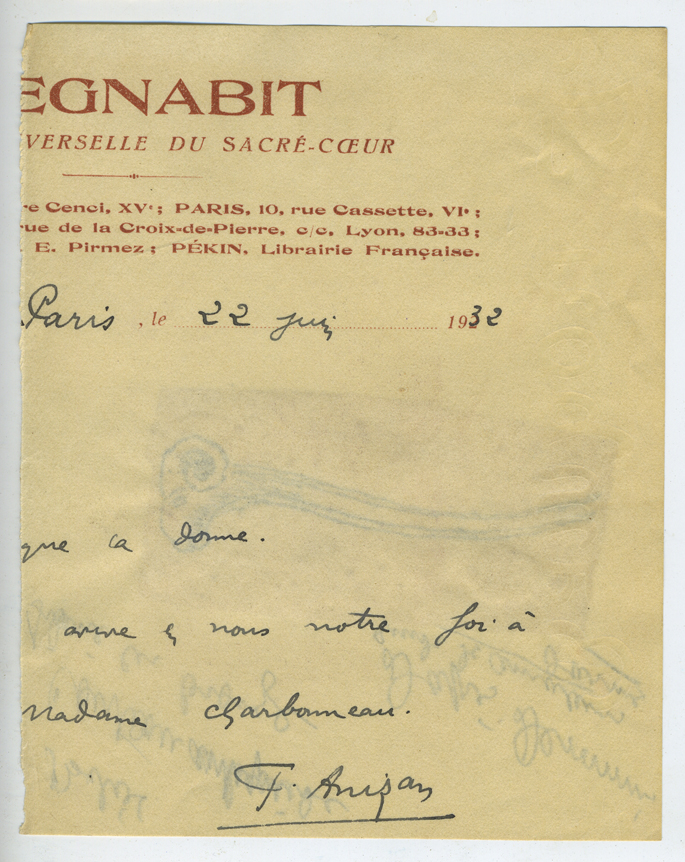 EGNABIT
VERSELLE DU SACRÉ-CŒUR
re Cenci, XVe; PARIS, 10, rue Cassette, VIe;
rue de la Croix-de-Pierre, c/c, Lyon, 83-33;
E. Pirmez; PÉKIN, Librairie Française.
Paris, le 22 juin 1932
que ça donne.
avive en nous notre foi à
Madame Charbonneau.
F. Anizan